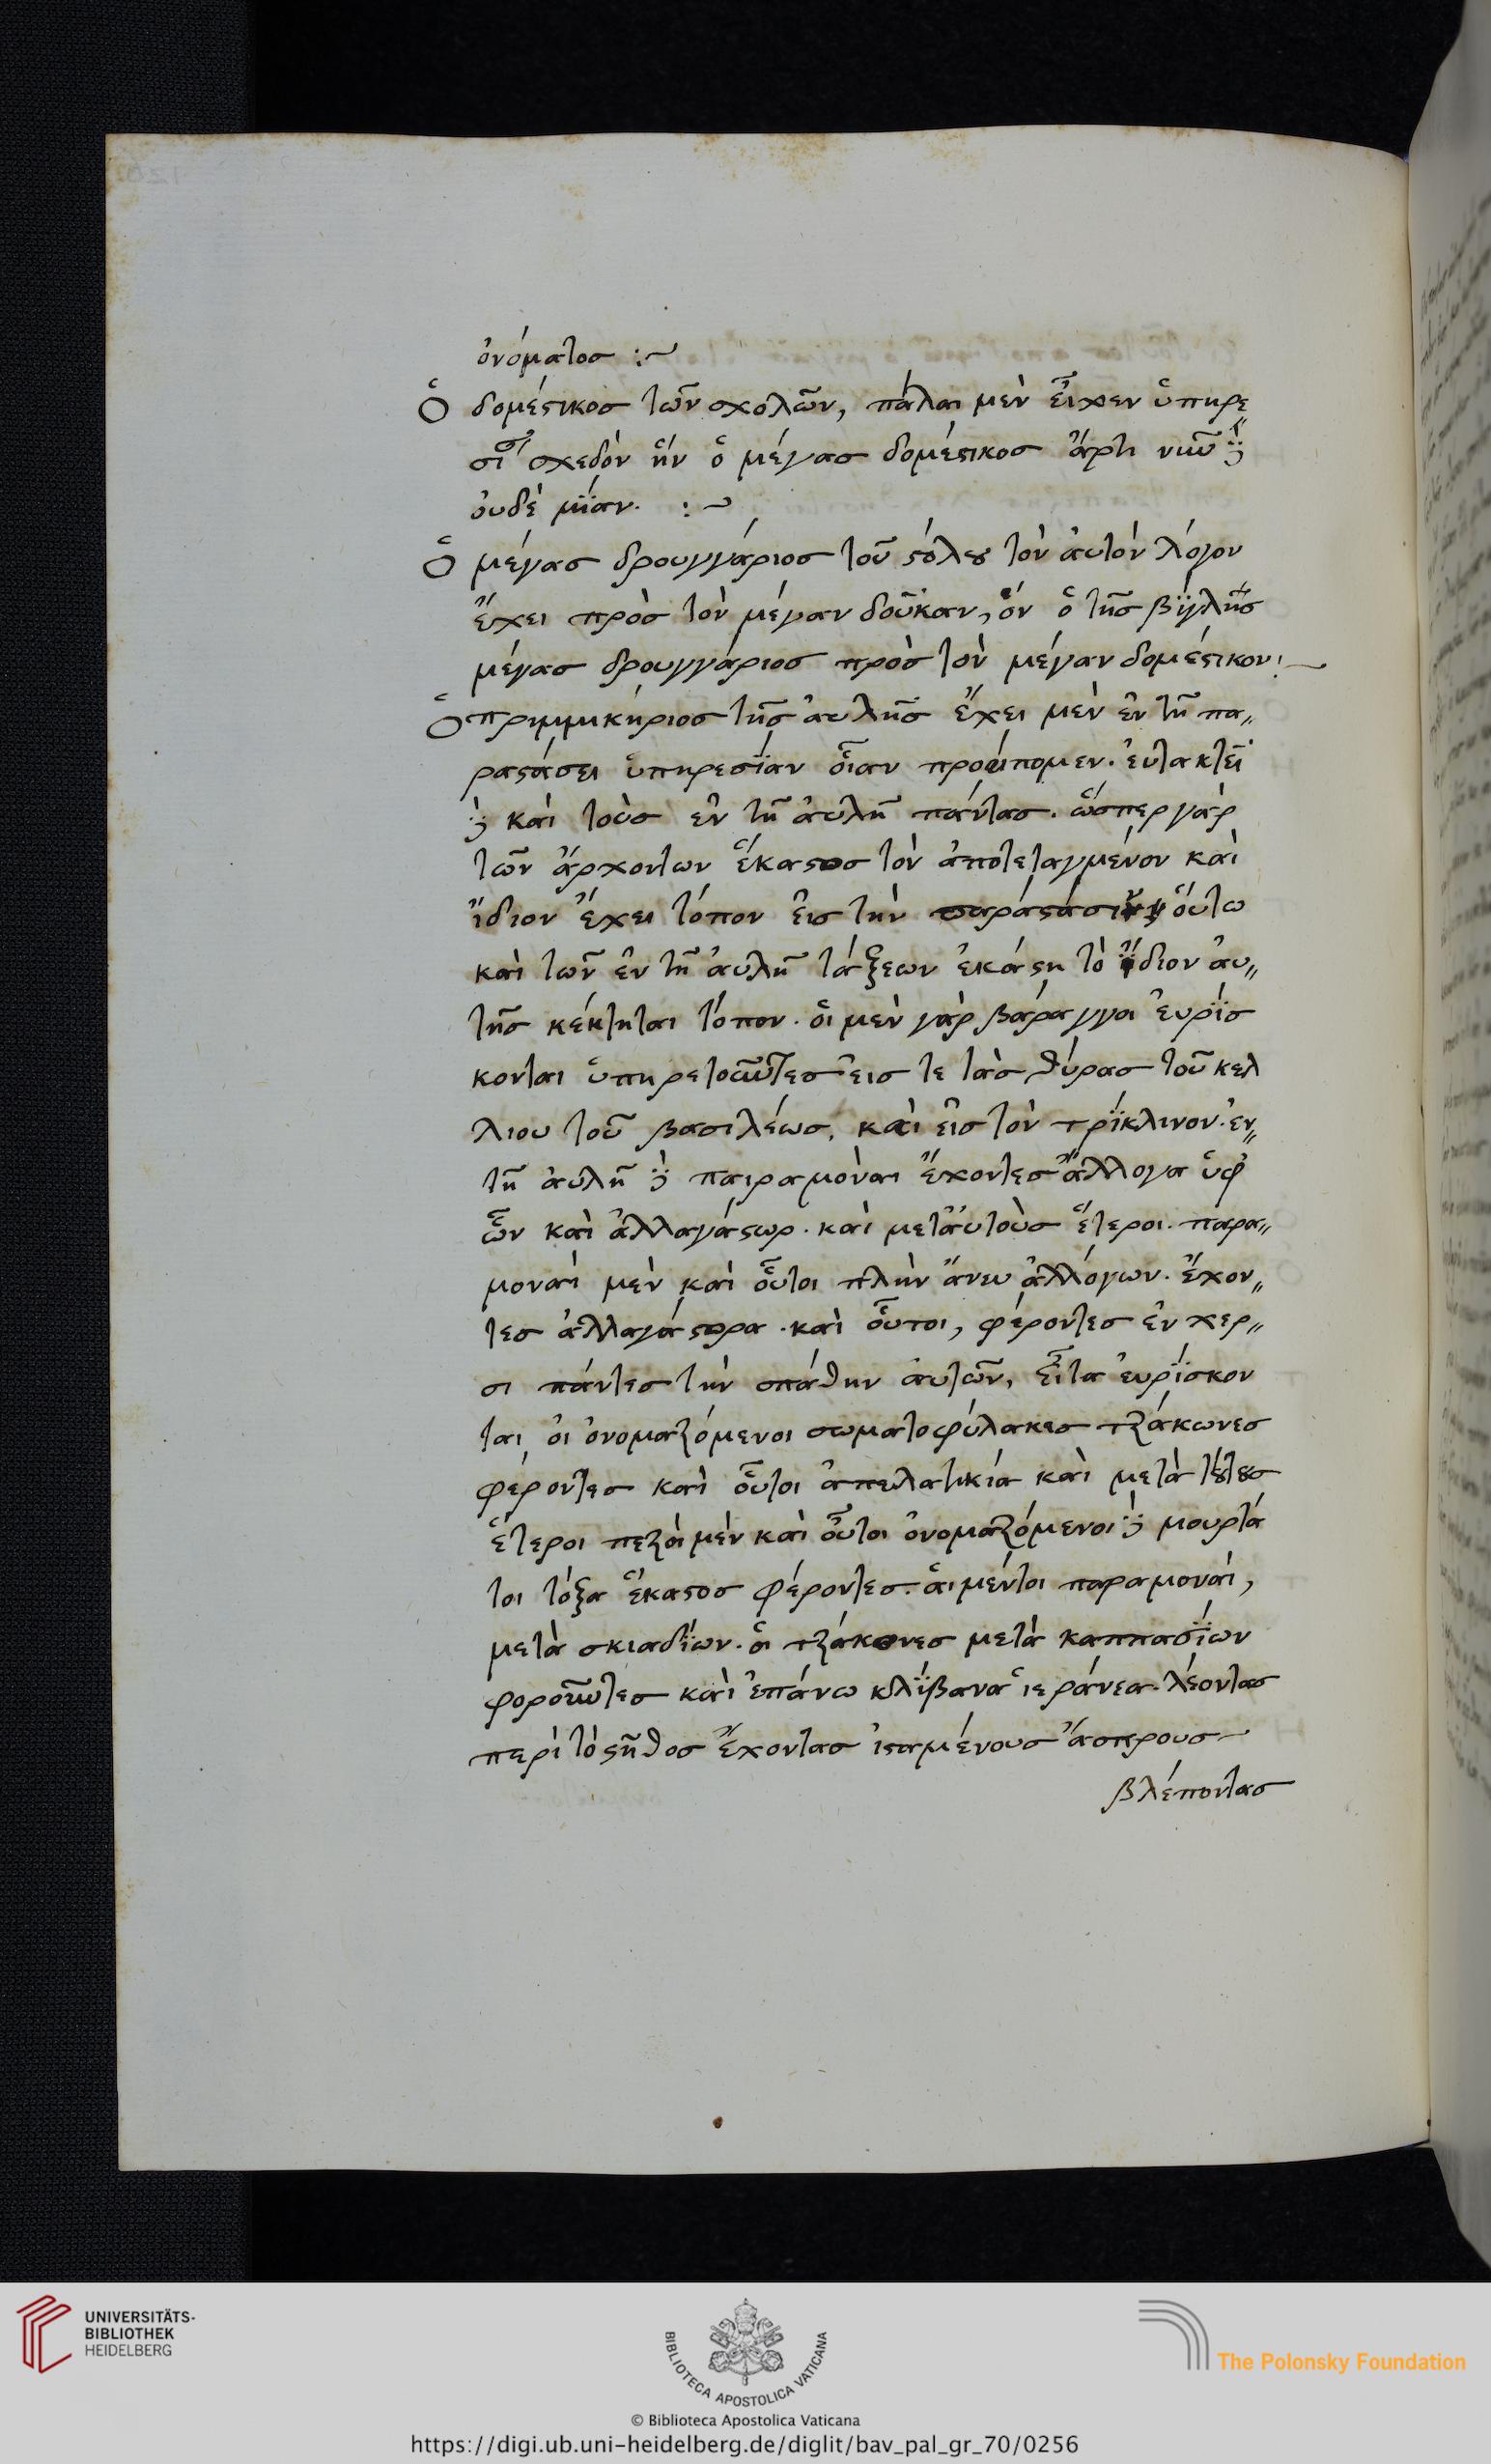 ὀνόματος :~
Ὁ δομέστικος τῶν σχολῶν, πάλαι μὲν εἶχεν ὑπηρε
σίαν σχεδὸν ἣν ὁ μέγας δομέστικος ἄρτι νῦν δὲ
οὐδὲ μΐαν. :~
Ὁ μέγας δρουγγάριος τοῦ στόλου τὸν ἀυτὸν λόγον
ἔχει πρὸς τὸν μέγαν δοῦκαν, ὃν ὁ τῆς βΐγλης
μέγας δρουγγάριος πρὸς τὸν μέγαν δομέστικον:~
Ὁ πριμμικήριος τῆς ἀυλῆς ἔχει μὲν ἐν τῆ πα
ραστάσει ὑπηρεσΐαν οἵαν προείπομεν. ἐυτακτεῖ
δὲ καὶ τοὺς ἐν τῆ ἀυλῆ πάντας. ὥσπερ γὰρ
τῶν ἀρχόντων ἕκαστος τὸν ἀποτεταγμένον καὶ
ἴδιον ἔχει τόπον εἰς τὴν παράστασιν οὕτω
καὶ τῶν ἐν τῆ ἀυλῆ τάξεων ἑκάστη τὸ ἴδιον ἀυ
τῆς κέκτηται τόπον. οἱ μὲν γὰρ βάραγγοι ἑυρΐσ
κονται ὑπηρετοῦντες εἰς τε τὰς θύρας τοῦ κελ
λιου τοῦ βασιλέως, καὶ εἰς τὸν τρΐκλινον. ἐν
τῆ ἀυλῆ δὲ παιραμοναὶ ἔχοντες ἄλλογα ὑφ'
ὧν καὶ ἀλλαγάτωρ. καὶ μετ' ἀυτοὺς ἕτεροι. παρα
μοναὶ μὲν καὶ οὗτοι πλὴν ἄνευ ἀλλόγων. ἔχον
τες ἀλλαγάτορα. καὶ οὗτοι, φέροντες ἐν χερ
σι πάντες τὴν σπάθην ἀυτῶν, εἶτα ἑυρΐσκον
ται οἱ ὀνομαζόμενοι σωματοφύλακες τζάκωνες
φέροντες καὶ οὗτοι ἀπελατικία καὶ μετὰ τούτους
ἕτεροι πεζοὶ μὲν καὶ οὗτοι ὀνομαζόμενοι δὲ μουρτά
τοι τόξα ἕκαστος φέροντες. αἱ μέντοι παραμοναὶ,
μετὰ σκιαδΐων. οἱ τζάκονες μετὰ καππασΐων
φοροῦντες καὶ ἐπάνω κλΐβανα ἱεράνεα. λέοντας
περὶ τὸ στῆθος ἔχοντας ἱσταμένους ἄσπρους
βλέποντας
UNIVERSITÄTS-
BIBLIOTHEK
HEIDELBERG
BIBLIOTECA APOSTOLICA VATICANA
The Polonsky Foundation
© Biblioteca Apostolica Vaticana
https://digi.ub.uni-heidelberg.de/diglit/bav_pal_gr_70/0256